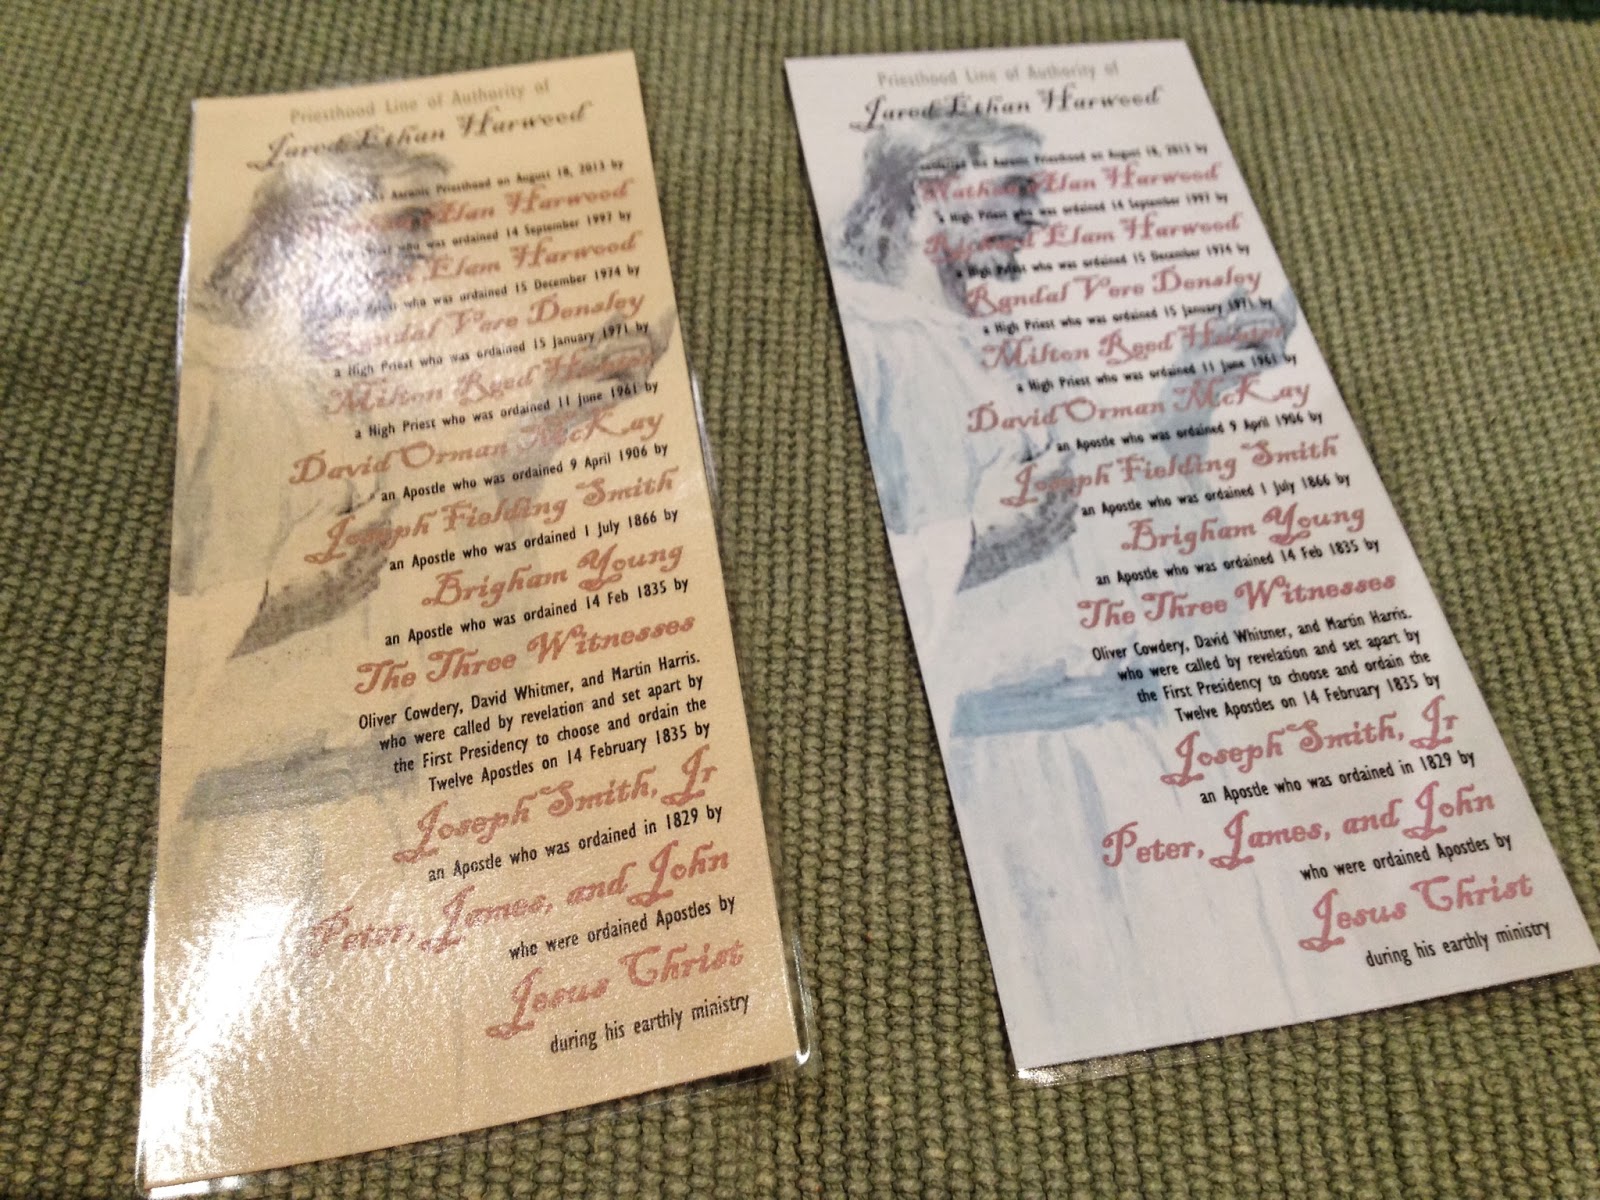 Priesthood Line of Authority of
Jared Ethan Harwood
Aaronic Priesthood on August 18, 2013 by
Alan Harwood
Priest who was ordained 14 September 1997 by
Elam Harwood
High Priest who was ordained 15 December 1974 by
Randal Vere Densley
a High Priest who was ordained 15 January 1971 by
Milton Reed
a High Priest who was ordained 11 June 1961 by
David Orman McKay
an Apostle who was ordained 9 April 1906 by
Joseph Fielding Smith
an Apostle who was ordained 1 July 1866 by
Brigham Young
an Apostle who was ordained 14 Feb 1835 by
The Three Witnesses
Oliver Cowdery, David Whitmer, and Martin Harris.
who were called by revelation and set apart by
the First Presidency to choose and ordain the
Twelve Apostles on 14 February 1835 by
Joseph Smith, Jr
an Apostle who was ordained in 1829 by
Peter, James, and John
who were ordained Apostles by
Jesus Christ
during his earthly ministry
Priesthood Line of Authority of
Jared Ethan Harwood
the Aaronic Priesthood on August 18, 2013 by
Nathan Alan Harwood
a High Priest who was ordained 14 September 1997 by
Richard Elam Harwood
a High Priest who was ordained 15 December 1974 by
Randal Vere Densley
a High Priest who was ordained 15 January 1971 by
Milton Reed
a High Priest who was ordained 11 June 1961 by
David Orman McKay
an Apostle who was ordained 9 April 1906 by
Joseph Fielding Smith
an Apostle who was ordained 1 July 1866 by
Brigham Young
an Apostle who was ordained 14 Feb 1835 by
The Three Witnesses
Oliver Cowdery, David Whitmer, and Martin Harris.
who were called by revelation and set apart by
the First Presidency to choose and ordain the
Twelve Apostles on 14 February 1835 by
Joseph Smith, Jr
an Apostle who was ordained in 1829 by
Peter, James, and John
who were ordained Apostles by
Jesus Christ
during his earthly ministry